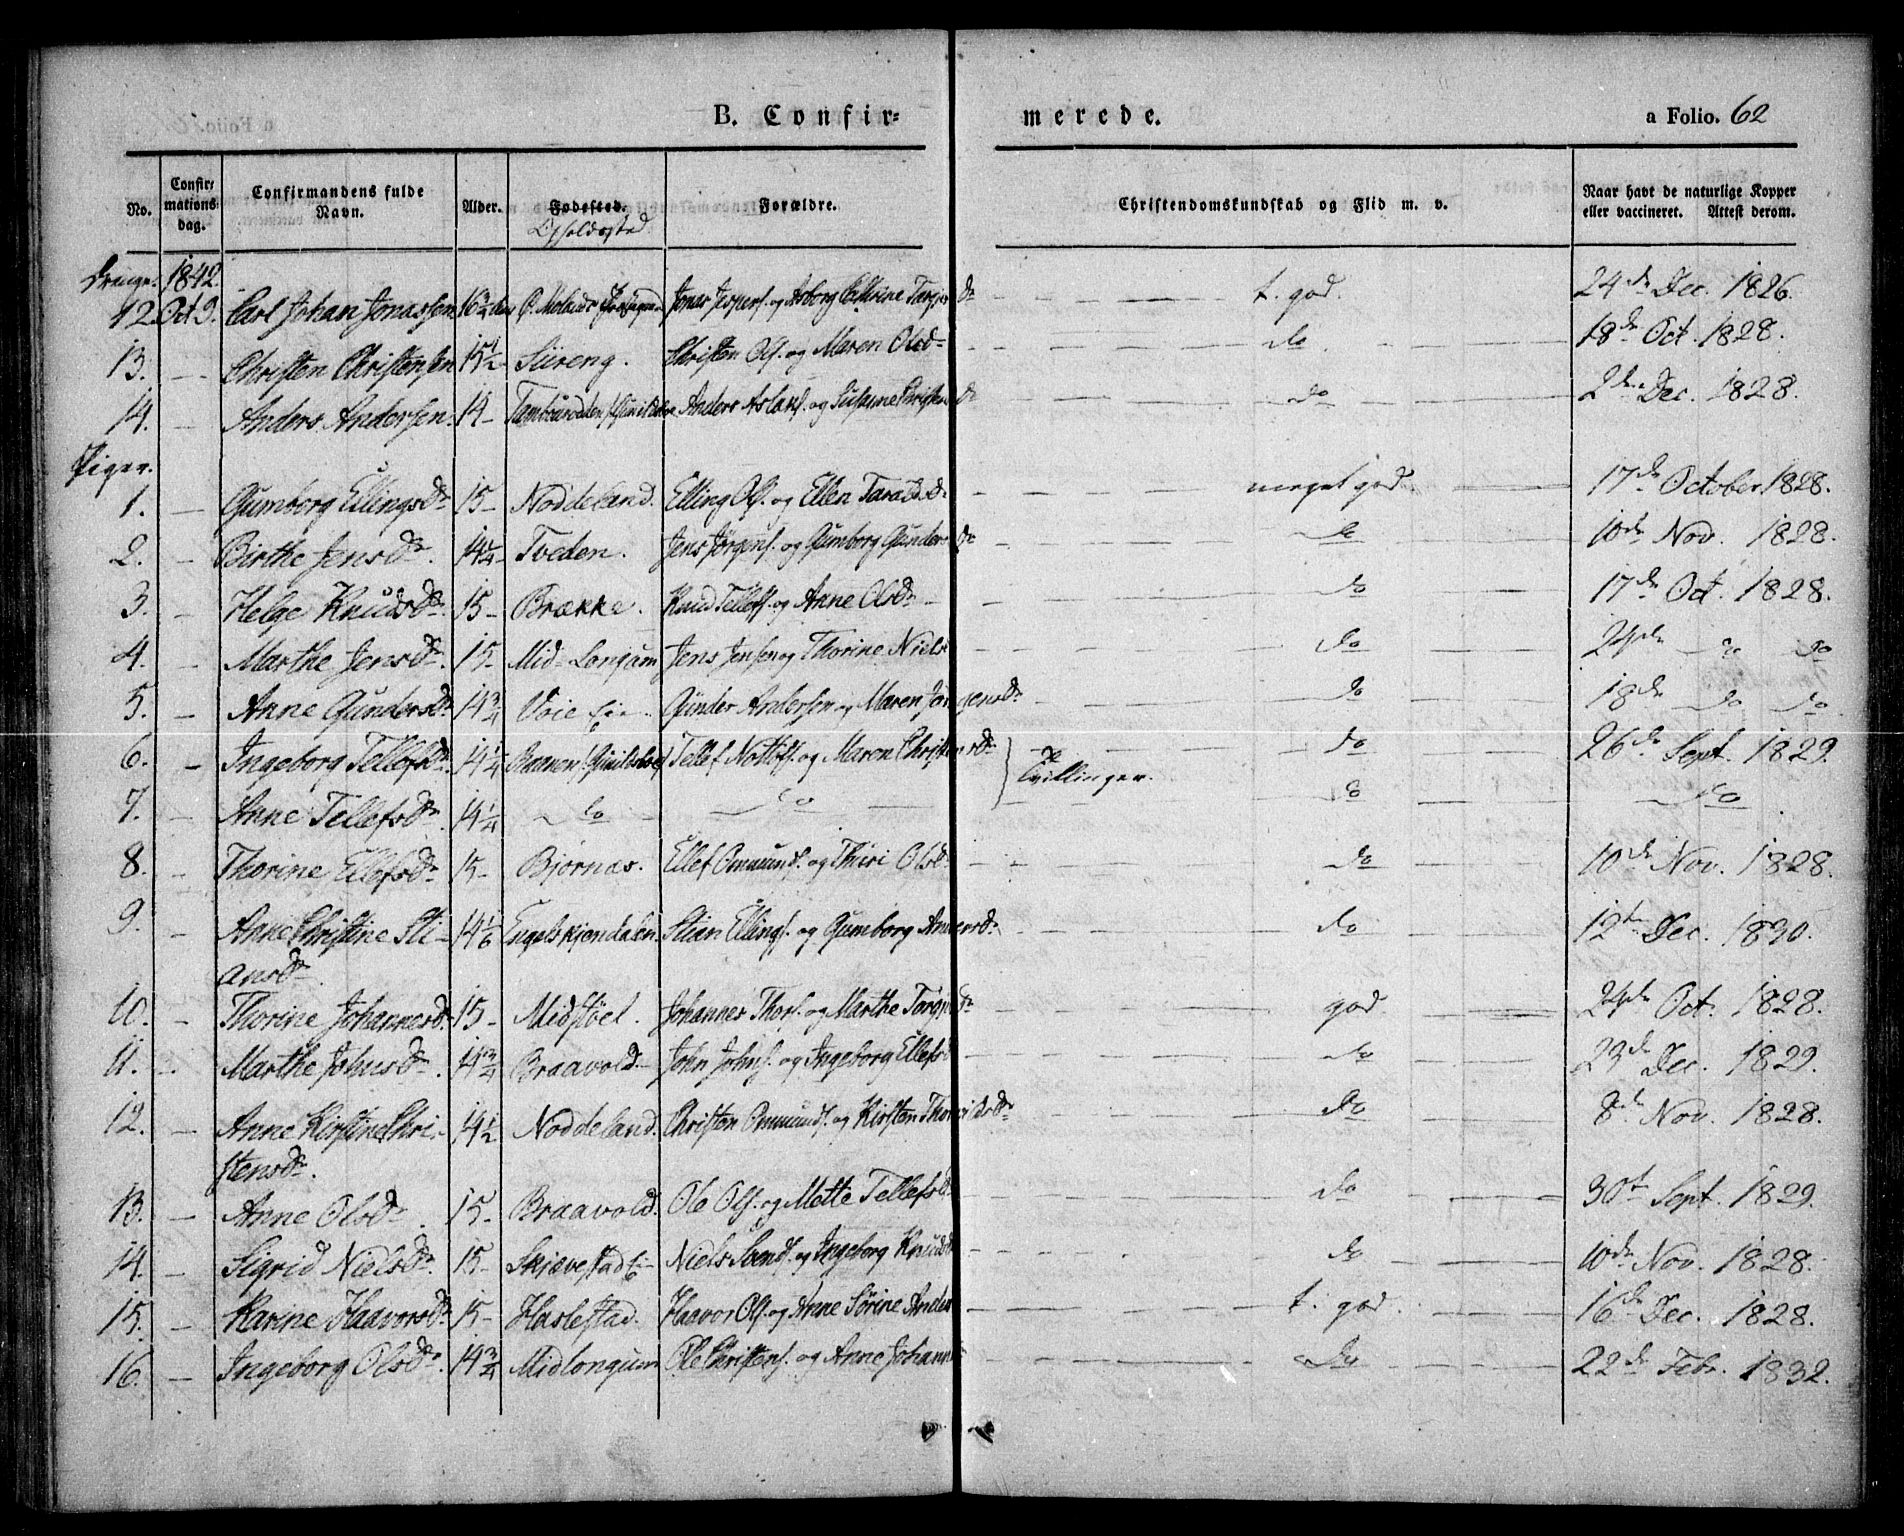 B. Confir= merede. a Folio. 62
No. Confir= mations dag. Confirmandens fulde Navn. Alder. Fødested. Opholdssted Forældre. Christendomskundskab og Flid m. v. Naar havt de naturlige Kopper eller vaccineret. Attest derom.
Drenge. 1842.
12. Oct 9. Carl Johan Jonassen 16 3/4 Jonas Jespers. og Asborg Cathrine d: t. god. 24de Dec. 1826.
13. — Christen Christensen 15 1/2 Siireng. Christen Ols. og Maren Olsd: do 18de Oct. 1828.
14. — Anders Andersen. 14 — Anders Aslaks. og Susanne Christensd: do 2de Dec. 1828.
Piger.
1. — Gumborg Ellingsdr 15 — Noddeland. Elling Ols. og Ellen Taraldsdr meget god. 17de October 1828.
2. — Birthe Jensdr. 14 1/4 Tveden. Jens Jørgens. og Gumborg Gundersdr do 10de Nov. 1828.
3. — Helge Knudsdr. 15 — Brække. Knud Tellefs. og Anne Olsdr do 17de Oct. 1828.
4. — Marthe Jensdr. 15 — Mid-Longum Jens Jensen og Thorine Niels do 24de do do
5. — Anne Gundersdr. 14 3/4 Voie Eie Gunder Andersen og Maren Jørgensdr. do 18de do do
6. — Ingeborg Tellefsdr. 14 1/4 Tellef Nottolfs. og Maren Christensdr. } Tvillinger. do 26de Sept. 1829.
7. — Anne Tellefsdr. 14 1/4 do do do do
8. — Thorine Ellefsdr 15 — Bjørnas. Ellef Omunds. og Thuri Olsd: do 10de Nov. 1828.
9. — Anne Christine Sti- 14 1/6 Engelskjøndalen. Stian Ellings. og Gumborg Andersdr. do 12te Dec. 1830.
ansdr.
10. — Thorine Johannesd. 15 — Midstøel. Johannes Thors. og Marthe d: god. 24de Oct. 1828.
11. — Marthe Johnsdr. 14 3/4 Braavold. John Johns. og Ingeborg Ellefsd do 23de Dec. 1829.
12. — Anne Kirstine Chri- 14 1/2 Noddeland. Christen Omunds. og Kirsten do 8de Nov. 1828.
stensdr.
13. — Anne Olsdr. 15 — Braavold. Ole Ols. og Mette Tellefsd. do 30te Sept. 1829.
14. — Sigrid Nielsdr. 15 — Skjævestad Eie Niels Svends. og Ingeborg Knudsd do 10de Nov. 1828.
15. — Karine Haavorsdr 15 — Haslestad. Haavor Ols. og Anne Sørine Anders t. god. 16de Dec. 1828.
16. — Ingeborg Olsdr. 14 3/4 Midlongum. Ole Christens. og Anne Johann do 22de Febr. 1832.